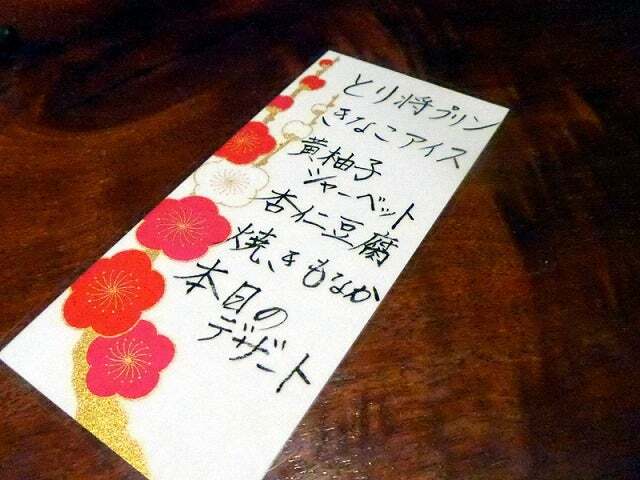 とり将プリン
きなこアイス
黄柚子
シャーベット
杏仁豆腐
焼きもなか
本日の
デザート